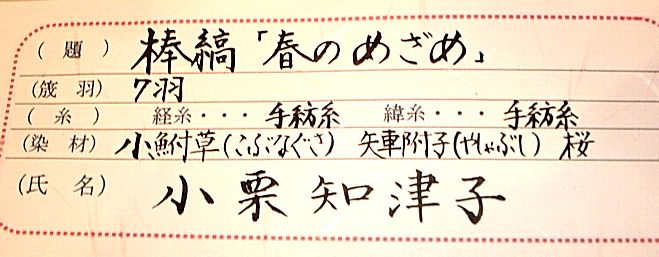 (題) 棒縞「春のめざめ」
(筬羽) 7羽
(糸) 経糸・・・手紡糸 緯糸・・・手紡糸
(染材) 小鮒草(こぶなぐさ) 矢車附子(やしゃぶし) 桜
(氏名) 小栗知津子